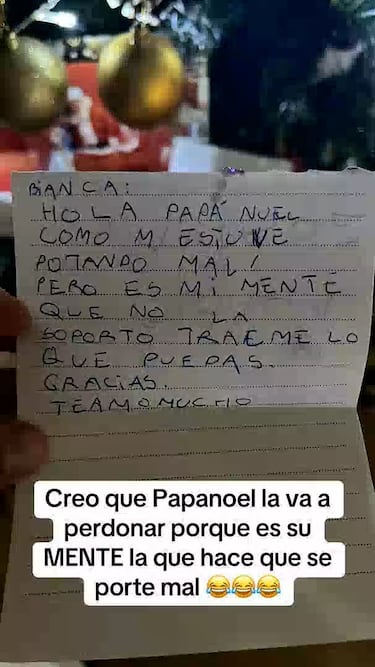 BIANCA:
HOLA PAPÁ NUEL
COMO M ESTUVE
POTANDO MAL!
PERO ES MI MENTE
QUE NO LA
SOPORTO TRAEME LO
QUE PUEDAS.
GRACIAS.
TEAMOMUCHO
Creo que Papanoel la va a
perdonar porque es su
MENTE la que hace que se
porte mal 😂😂😂